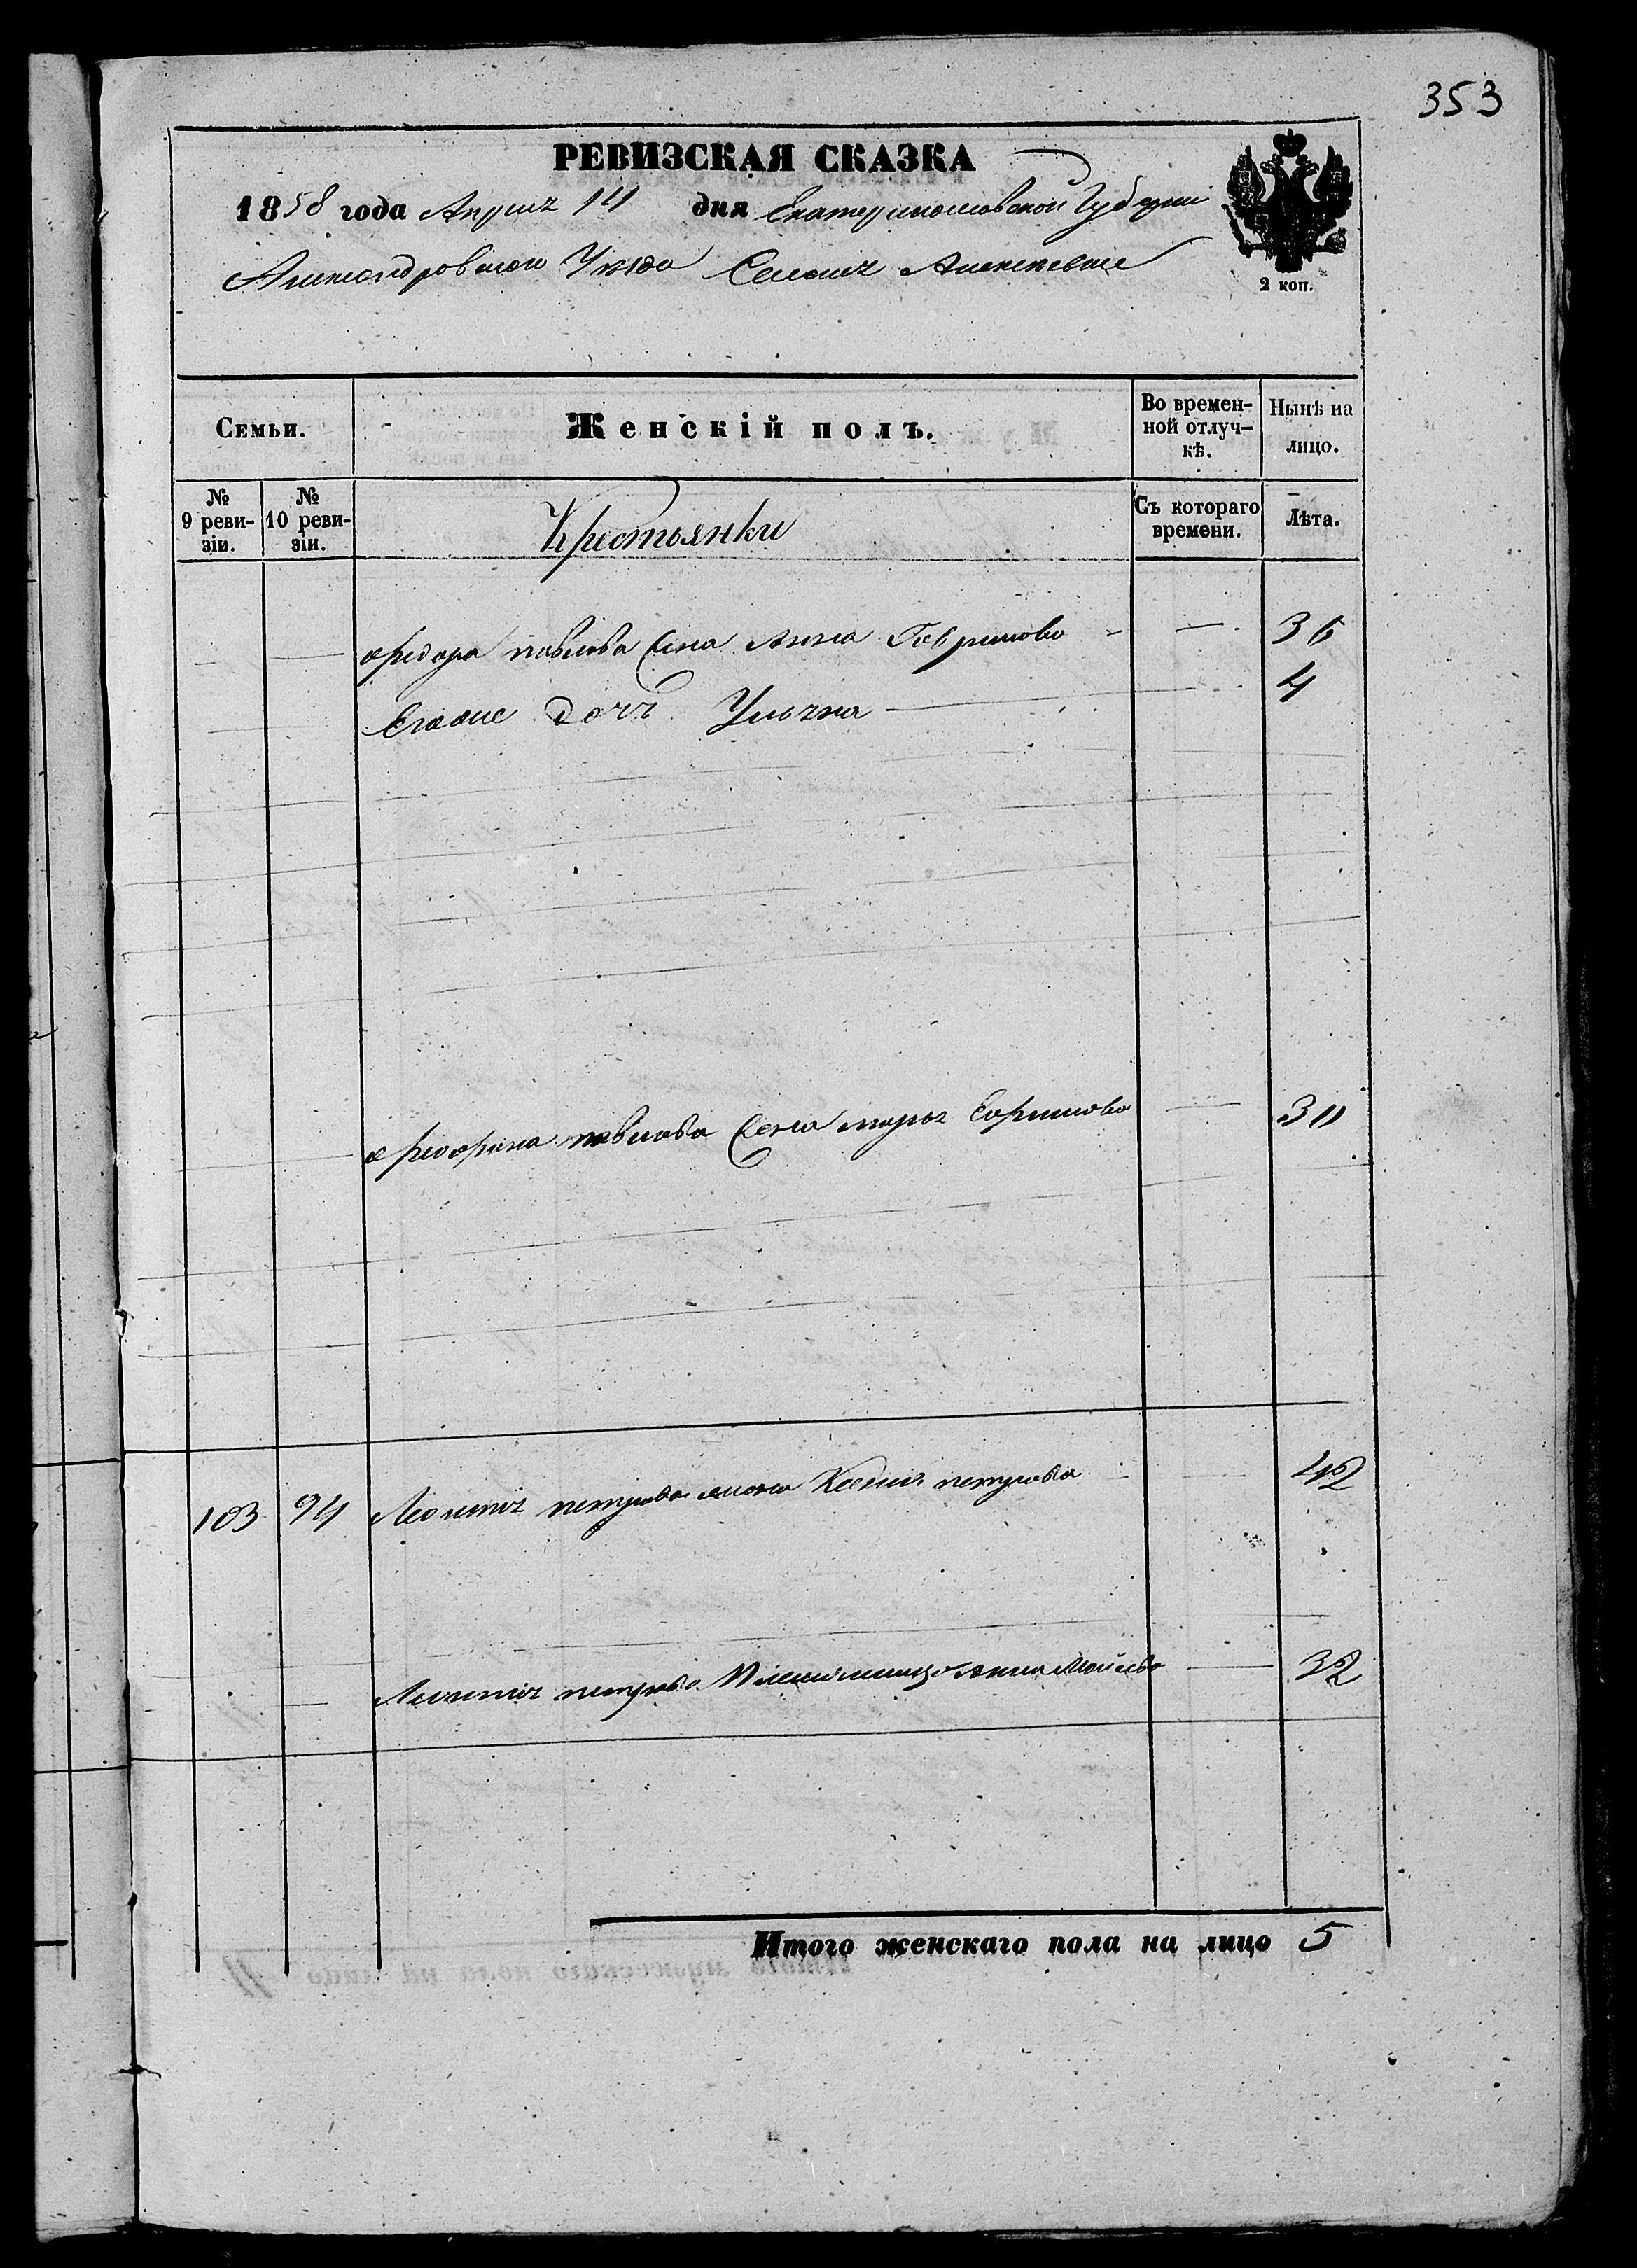 353
РЕВИЗСКАЯ СКАЗКА
1858 года Априля 14 дня Екатеринославской Губерніи
Александровскаго Уезда Алексеевки
2 коп.
Семьи. Женскій полъ. Во времен-ной отлуч-кѣ. Нынѣ на лицо.
№ 9 реви-зіи. № 10 реви-зіи. Крестьянки Съ котораго времени. Лѣта.
Федора павлова жена Анна Гаврилова — 36
Его дочь Ульяна — 4
павлова жена марья — 30
103 94 Леонтія петрова жена Ксения петрова 42
Леонтія петрова Анна — 32
Итого женскаго пола на лицо 5